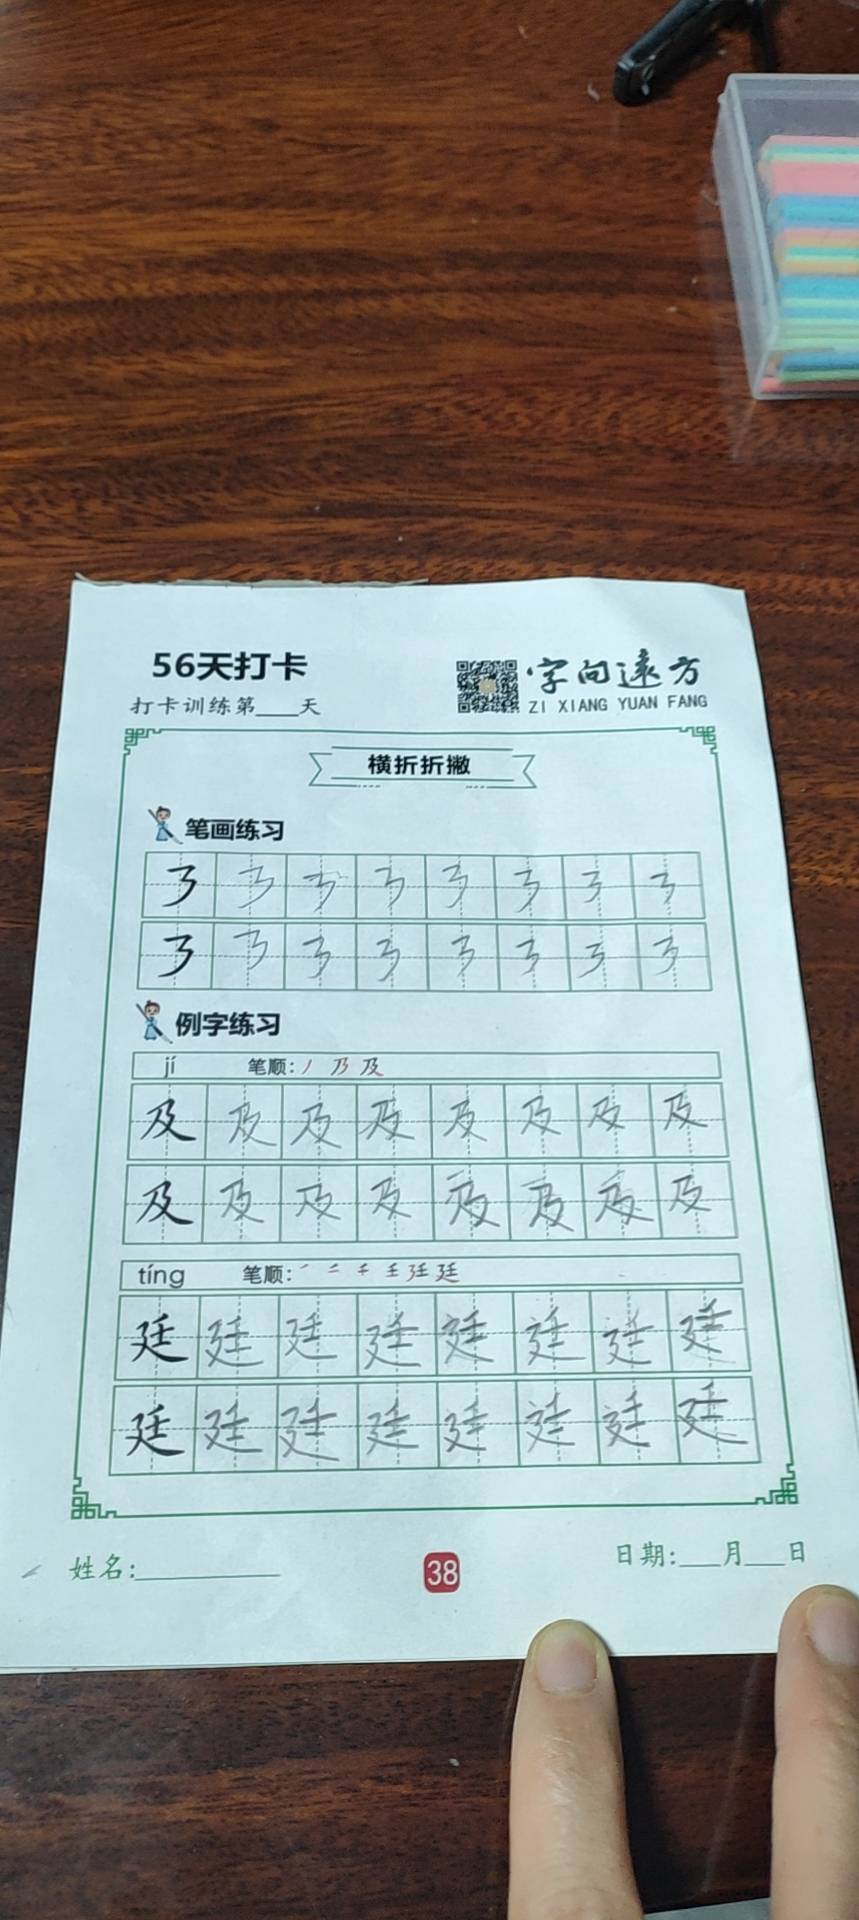 56天打卡
打卡训练第___天
字向遠方
ZI XIANG YUAN FANG
横折折撇
笔画练习
㇋ ㇋ ㇋ ㇋ ㇋ ㇋ ㇋ ㇋
㇋ ㇋ ㇋ ㇋ ㇋ ㇋ ㇋ ㇋
例字练习
jí 笔顺: 丿 乃 及
及 及 及 及 及 及 及 及
及 及 及 及 及 及 及 及
tíng 笔顺:
廷 廷 廷 廷 廷 廷 廷 廷
廷 廷 廷 廷 廷 廷 廷 廷
姓名:
38
日期:___月___日